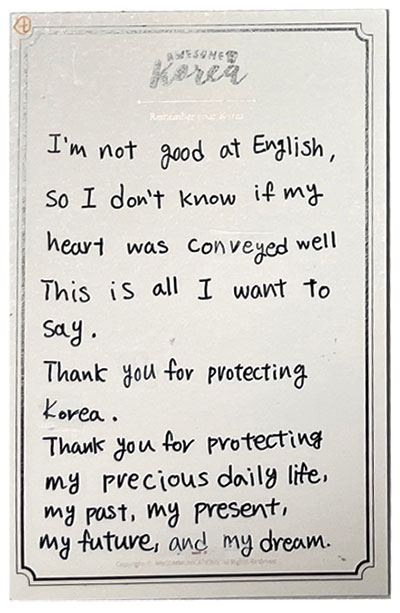 AWESOME
Korea
Remember your Korea
I'm not good at English,
so I don't know if my
heart was conveyed well
This is all I want to
say.
Thank you for protecting
Korea.
Thank you for protecting
my precious daily life,
my past, my present,
my future, and my dream.
Copyright ©
All Rights Reserved